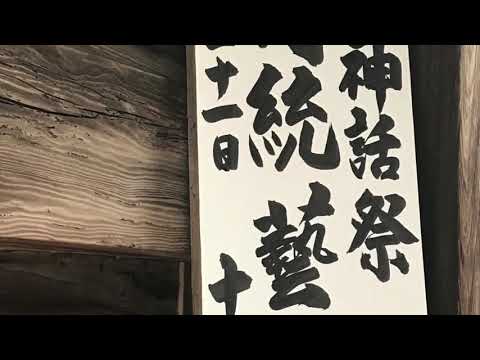 神話祭
統藝
十一日 十